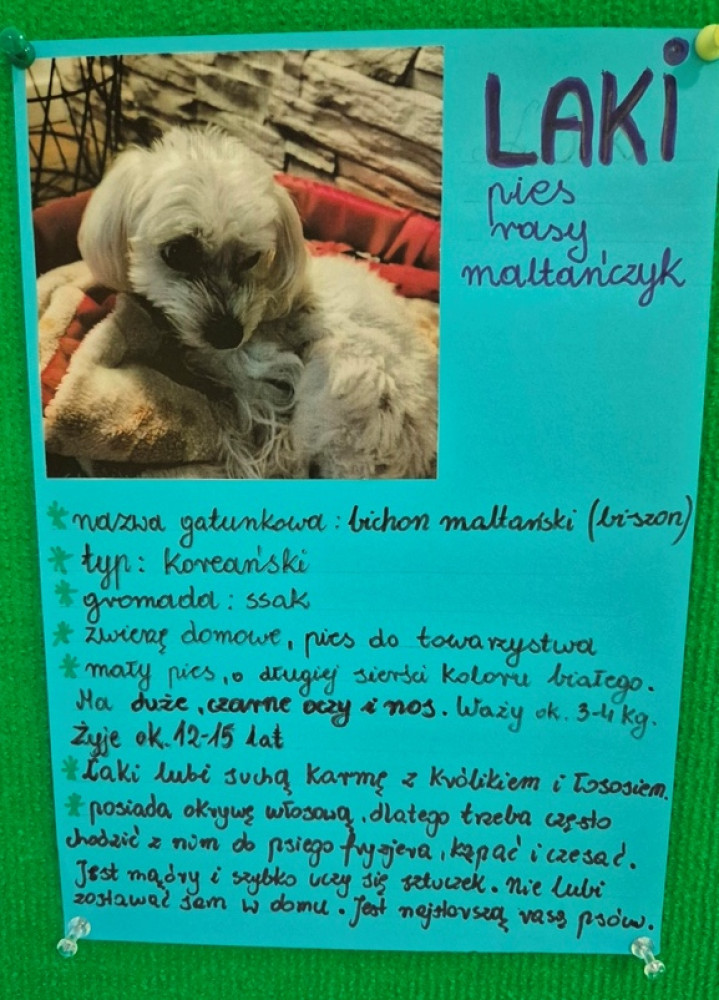 LAKi
pies
rasy
maltańczyk
nazwa gatunkowa : bichon maltański (bi-szon)
typ : Koreański
gromada : ssak
zwierzę domowe, pies do towarzystwa
mały pies, o długiej sierści koloru białego.
Ma duże, czarne oczy i nos. Waży ok. 3-4 kg.
Żyje ok. 12-15 lat
Laki lubi suchą karmę z królikiem i łososiem.
posiada okrywę włosową, dlatego trzeba często
chodzić z nim do psiego fryzjera, kąpać i czesać.
Jest mądry i szybko uczy się sztuczek. Nie lubi
zostawać sam w domu. Jest najstarszą rasą psów.